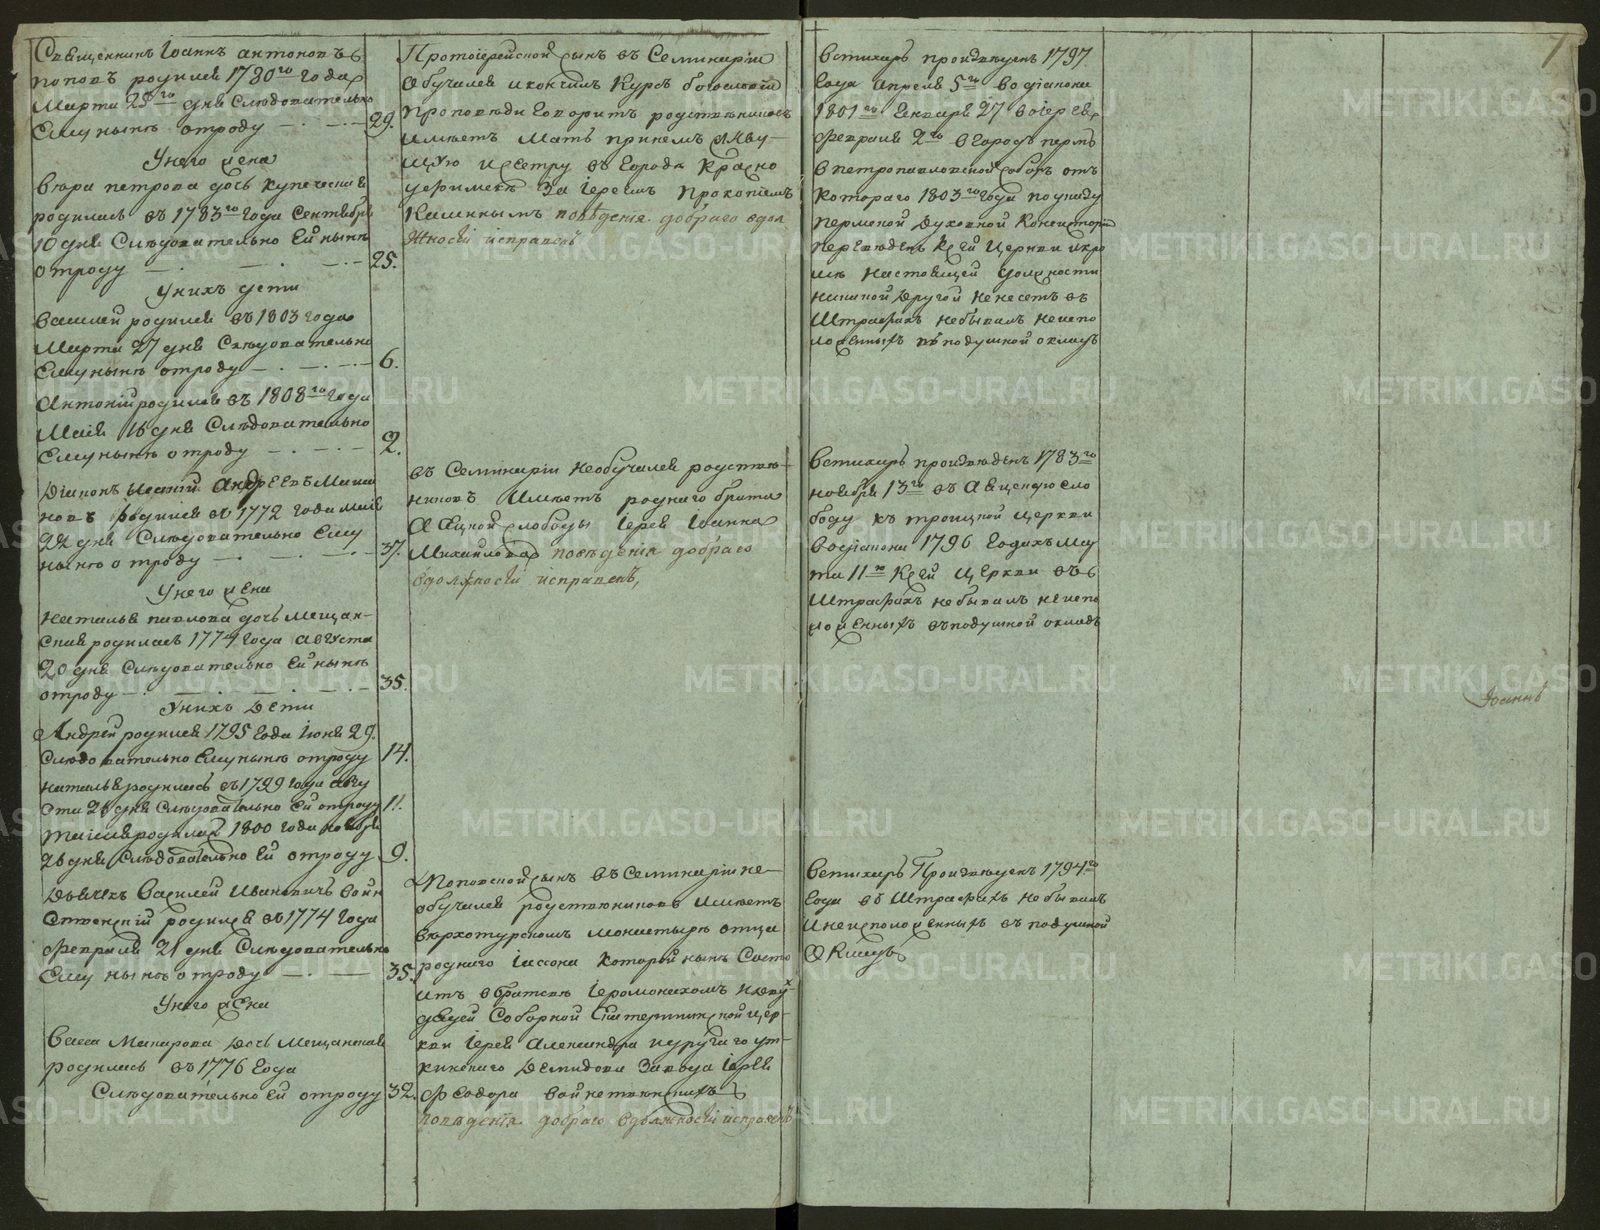 Священникъ Іоаннъ антоновъ
поповъ родился 1780го года
Марта 25го дня Следовательно
Ему нынѣ отроду 29.
Унего жена
вера петрова дочь купеческая
родилась въ 1783го года Сентября
10 дня Слѣдовательно Ей нынѣ
отроду 25.
Унихъ дети
василей родился въ 1803 года
Марта 27 дня Слѣдовательно
Ему нынѣ отроду 6.
Антоній родился въ 1808го года
Маія 16 дня Слѣдовательно
Ему нынѣ отроду 2.
Діаконъ Андреевъ
новъ родился въ 1772 года маія
22 дня Слѣдовательно Ему
нынѣ отроду 37.
Унего жена
Наталья павлова дочь мещан-
ская родилась 1774 года августа
20 дня Слѣдовательно Ей нынѣ
отроду 35.
Унихъ Дети
Андрей родился 1795 года Іюня 29.
Слѣдовательно Ему нынѣ отроду 14.
Наталья родилась въ 1799 года авгу
ста 26 дня Слѣдовательно Ей отроду 11.
родилась 1800 года ноября
26 дня Слѣдовательно Ей отроду 9.
Дьячекъ Василей Ивановичъ воин
ственскій родился въ 1774 года
Февраля 21 дня Слѣдовательно
Ему нынѣ отроду 35.
Унего жена
Васса Макарова Дочь Мещанская
родилась въ 1776 года
Слѣдовательно Ей отроду 32.
Протоіерейской сынъ въ Семинаріи
Обучался икончилъ Курсъ богословіи
проповѣди Говоритъ родственниковъ
имѣетъ мать принемъ живу-
щую исестру въ Городѣ Красно
уфимскѣ За Іереемъ Прокопіемъ
Калининымъ поведенія добраго вдол
жности исправенъ
въ Семинаріи необучался родствен-
никовъ Имѣетъ роднаго брата
Аяцкой слободы Іерея Іоанна
Михайлова поведенія добраго
вдолжности исправенъ,
Поповской сынъ въ Семинаріи не-
обучался родственниковъ Имѣетъ
вверхотурскомъ монастырѣ отца
роднаго Іассона которой нынѣ Состо
итъ вбратствѣ Іеромонахомъ
Соборной Екатерининской цер-
кви Іерея Александра идругаго ут-
кинскаго Демидова Завода Іерея
Феодора
поведенія добраго вдолжности исправенъ
Встихарь произведенъ 1797
Года Апреля 5го Водіакона
1801го Генваря 27 воіерея
Февраля 2го вГородъ пермь
впетропавловской соборъ отъ
Котораго 1803го года поуказу
пермской Духовной Консисторіи
переведенъ Ксей Церкви икро
мѣ Настоящей должности
никакой Другой Ненесетъ въ
Штрафахъ небывалъ неиспо
ложенныхъ въподушной окладъ
Встихарь произведенъ 1783го
Ноября 13го въ Аяцскую Сло
боду къ троицкой Церкви
Водіакона 1796 Года
11го Ксей Церкви въ
Штрафахъ небывалъ неиспо
ложенныхъ въподушной окладъ
Встихарь Произведенъ 1794го
Года въ Штрафахъ небывалъ
Инеисположенныхъ въ подушной
Окладъ
7
Іоаннъ
METRIKI.GASO-URAL.RU